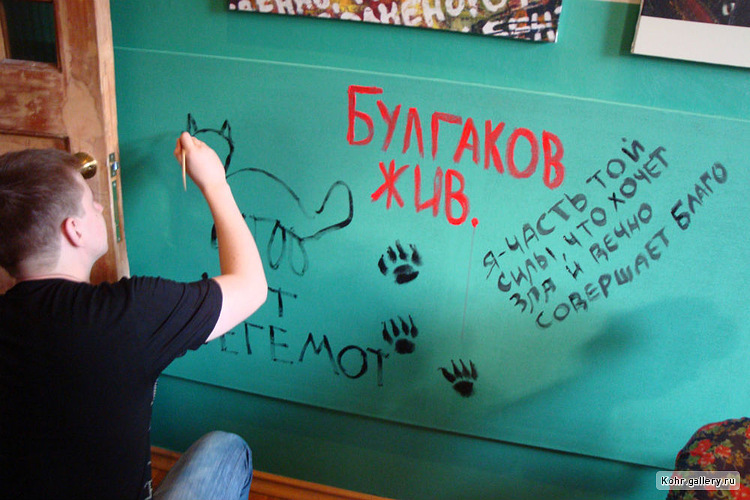 БУЛГАКОВ
ЖИВ.
Я-ЧАСТЬ ТОЙ
СИЛЫ, ЧТО ХОЧЕТ
ЗЛА И ВЕЧНО
СОВЕРШАЕТ БЛАГО
ЕГЕМОТ
Kohr.gallery.ru